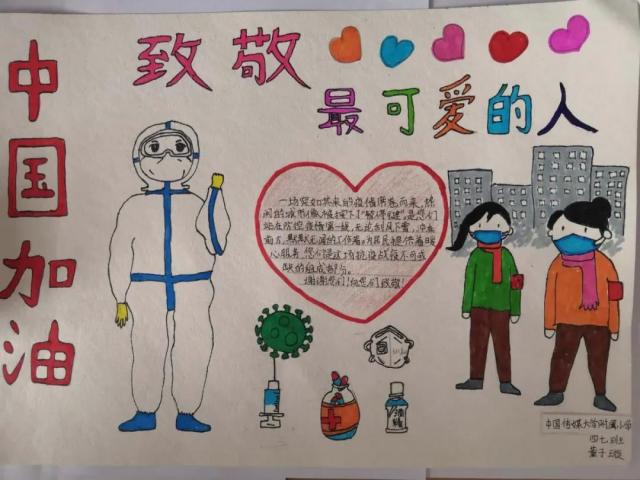 中国加油
致敬
最可爱的人
一场突如其来的疫情席卷而来,
的城市像被按下了"暂停键",是您们
站在防控疫情第一线,无论刮风下雪,冲在
前方,默默无闻的工作着,为居民提供着暖
心服务,您们是这场抗疫战役不可或
缺的组成部分。
谢谢您们!向您们致敬!
酒精
中国传媒大学附属小学
四七班
董子璇